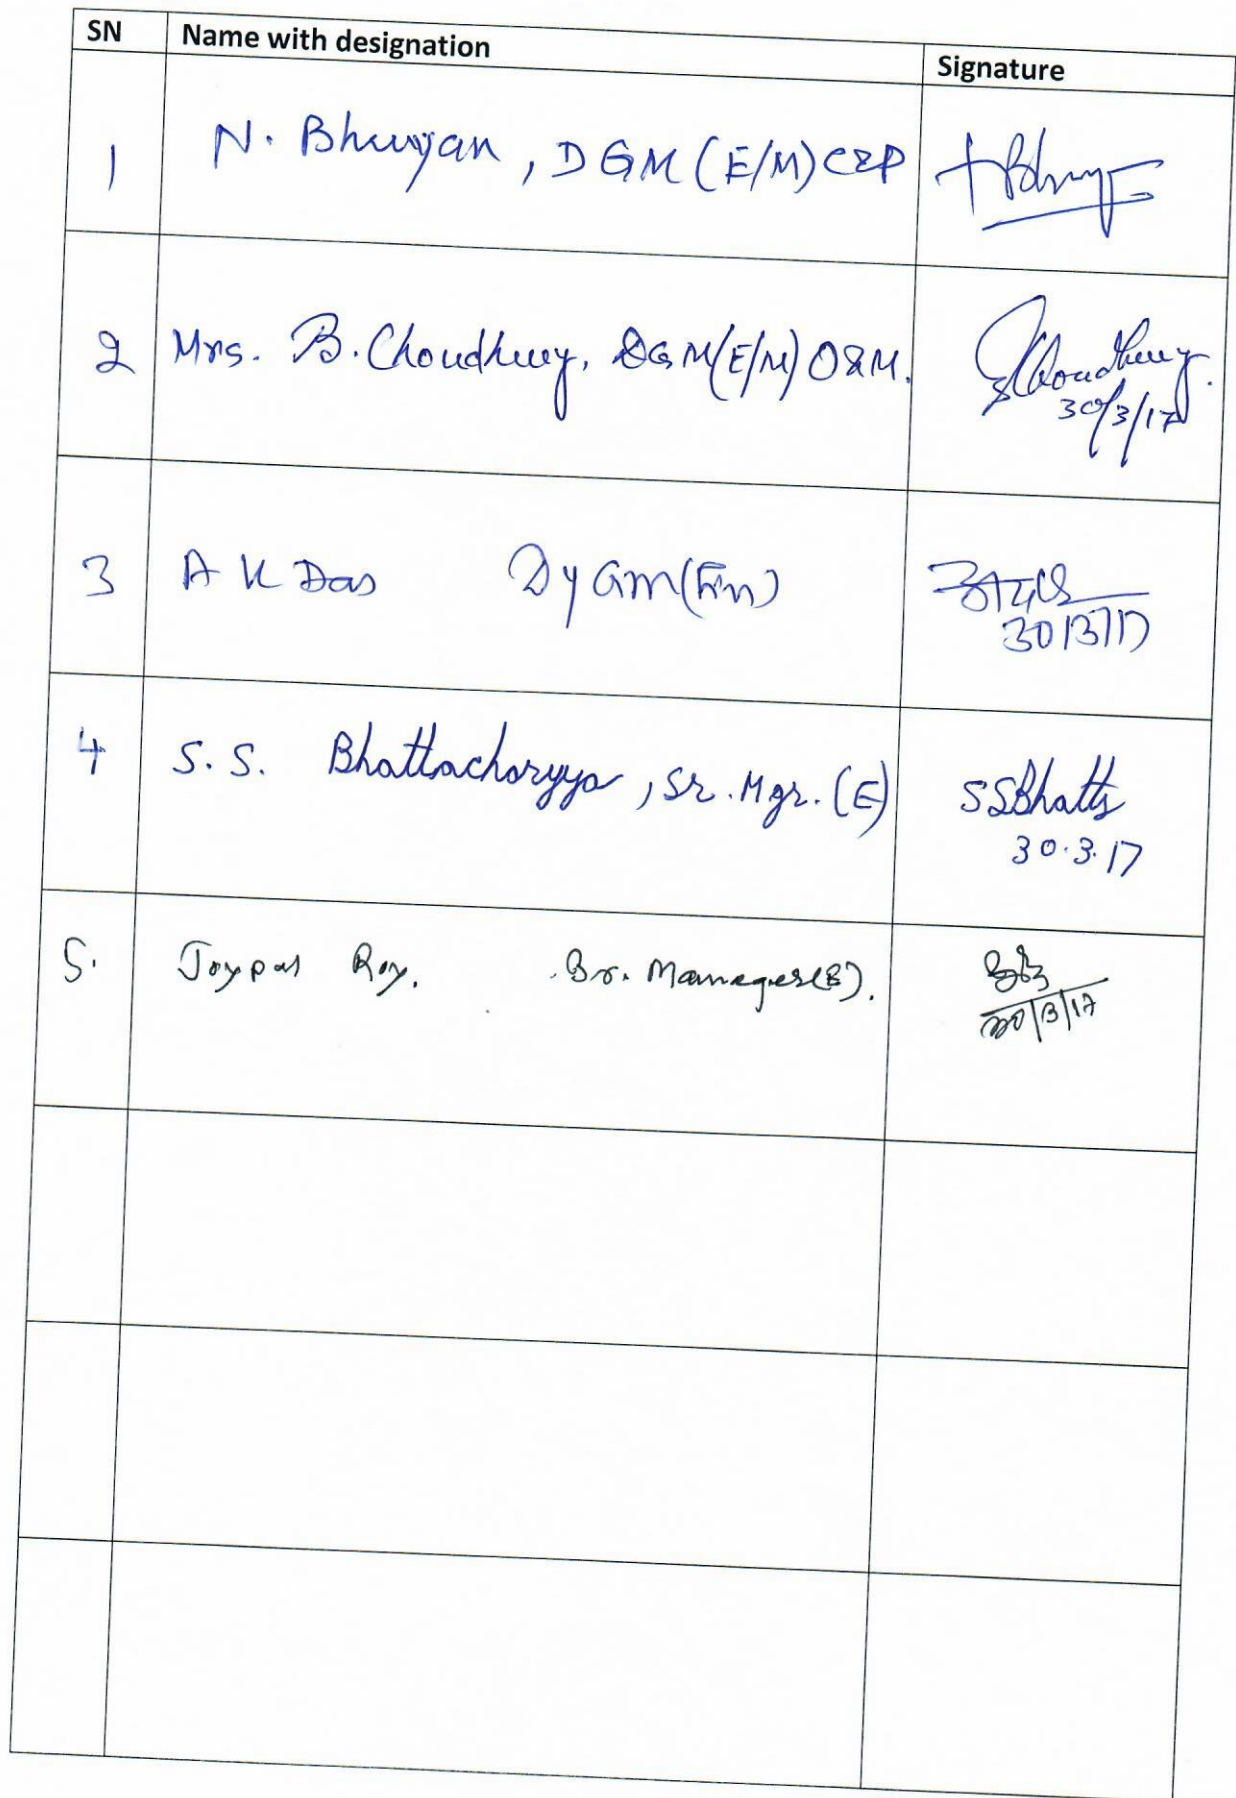 SN Name with designation Signature
1 N. Bhuyan, DGM (E/M) C&P
2 Mrs. B. Choudhury, DGM(E/M) O&M. Choudhury.
30/3/17
3 A K Das Dy Gm(Fin)
30/3/17
4 S. S. Bhattacharyya, Sr. Mgr. (E) SSBhatt
30.3.17
5. Roy. Sr. Manager(E).
30/3/17